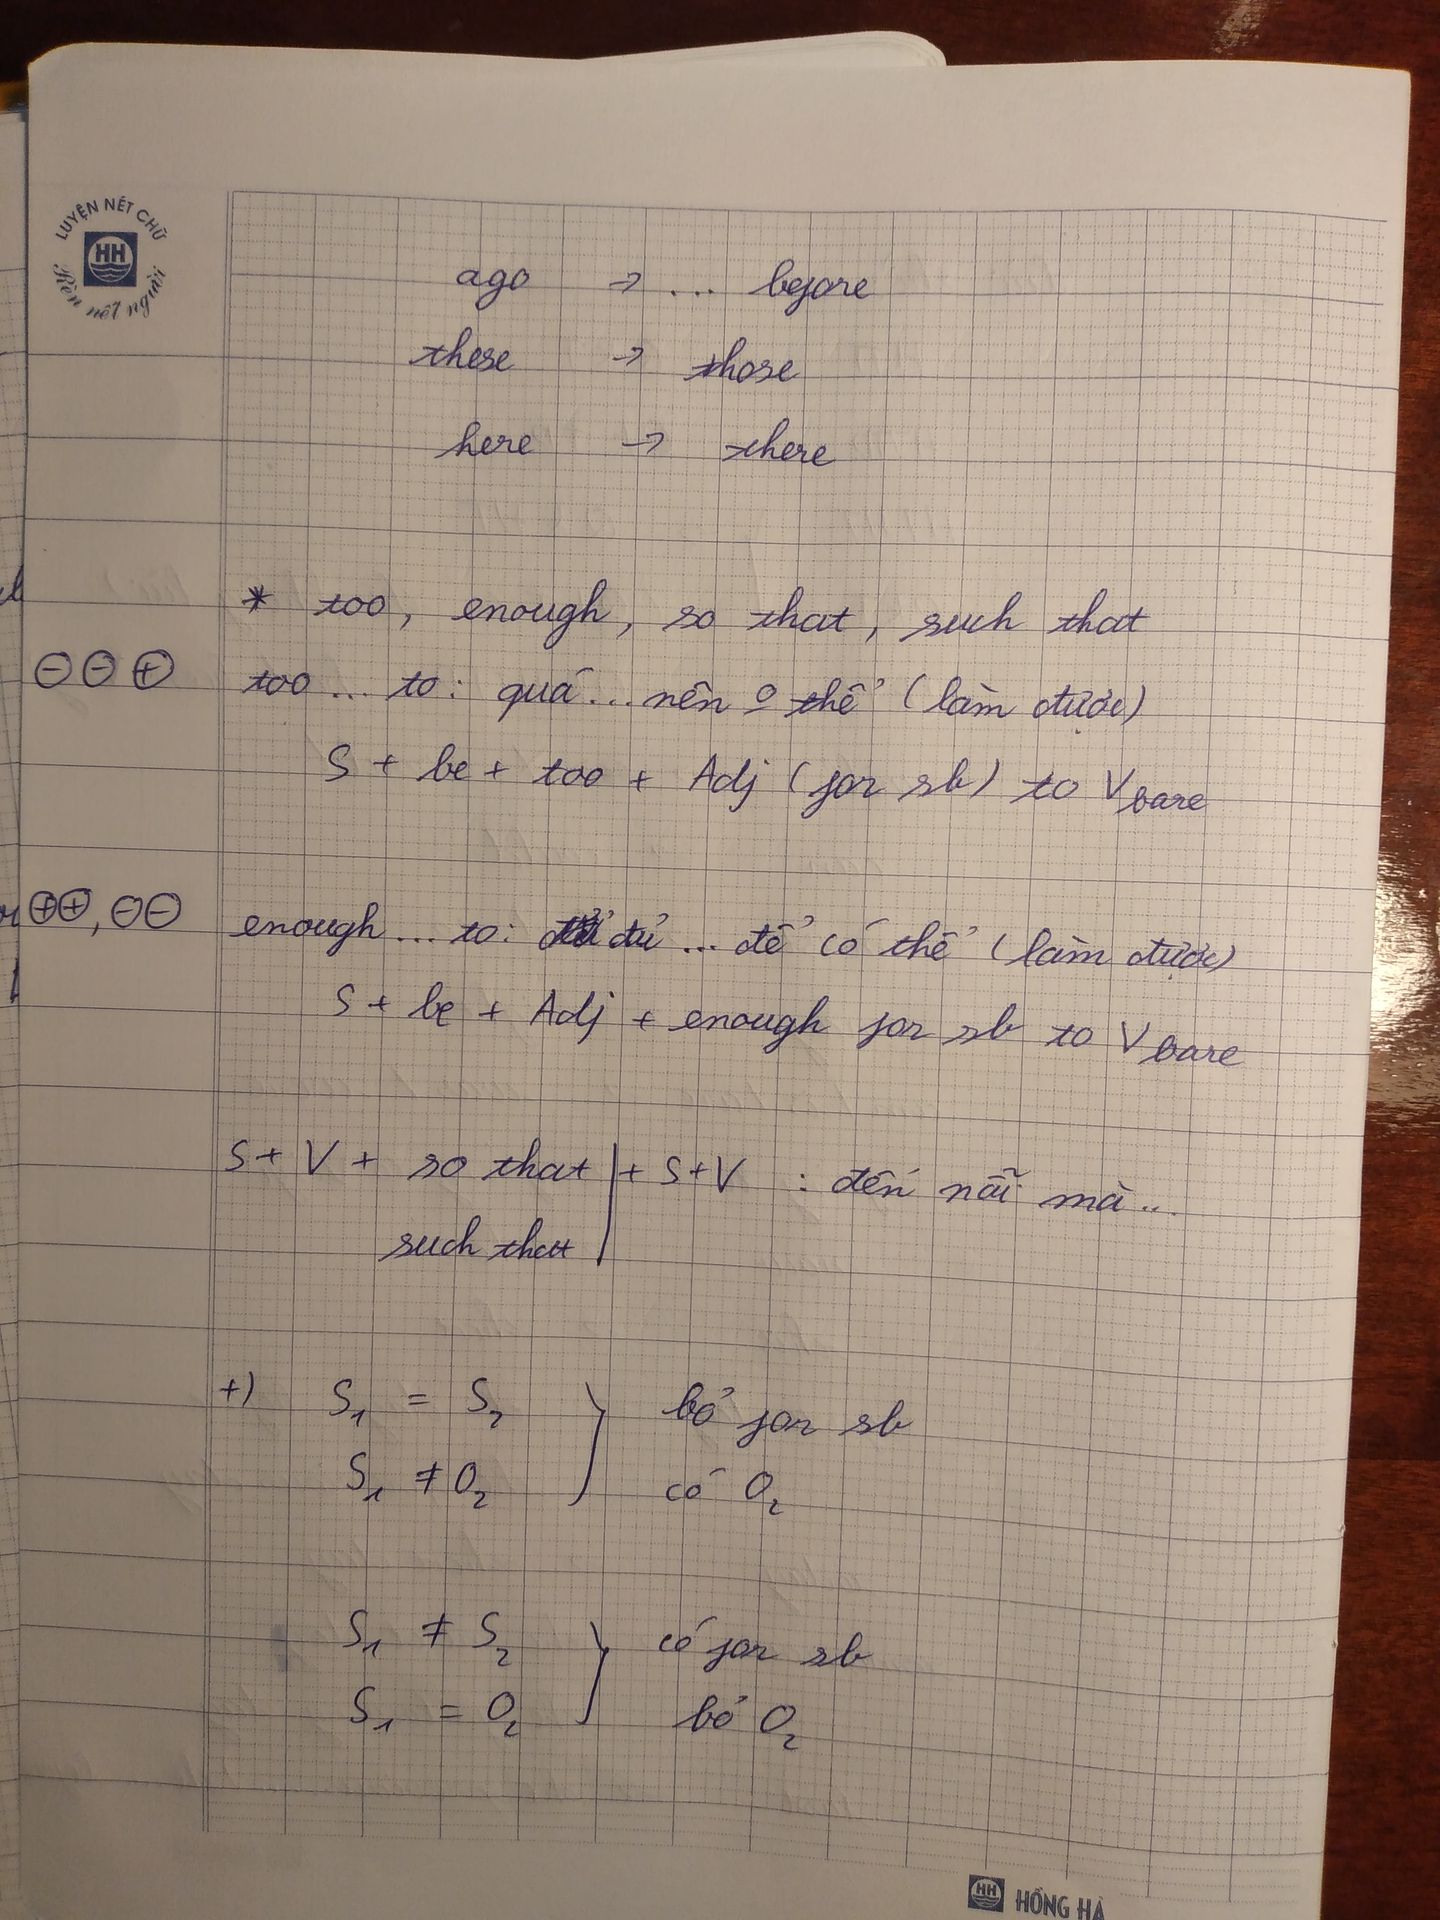 LUYỆN NÉT CHỮ
HH
Rèn nết người
ago → ... before
these → those
here → there
* too, enough, so that, such that
⊖ ⊖ ⊕ too ... to : quá ... nên o thể (làm được)
S + be + too + Adj (for sb) to V bare
⊕⊕, ⊖⊖ enough ... to : đủ ... để có thể (làm được)
S + be + Adj + enough for sb to V bare
S + V + so that | + S + V : đến nỗi mà ...
such that
+) S₁ = S₂ } bỏ for sb
S₁ ≠ O₂ có O₂
S₁ ≠ S₂ } có for sb
S₁ = O₂ bỏ O₂
HH HỒNG HÀ